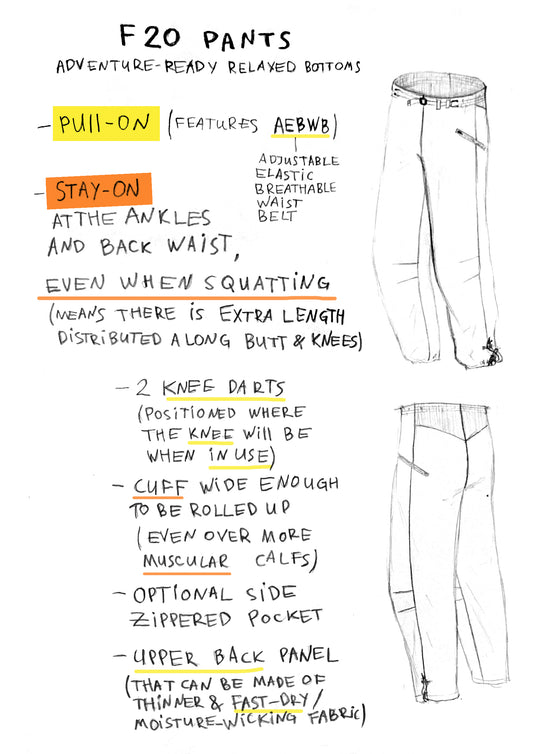 F20 PANTS
ADVENTURE-READY RELAXED BOTTOMS
- PUll-ON (FEATURES AEBWB)
ADJUSTABLE
ELASTIC
BREATHABLE
WAIST
BELT
- STAY-ON
AT THE ANKLES
AND BACK WAIST,
EVEN WHEN SQUATTING
(MEANS THERE IS EXTRA LENGTH
DISTRIBUTED ALONG BUTT & KNEES)
- 2 KNEE DARTS
(POSITIONED WHERE
THE KNEE Will BE
WHEN IN USE)
- CUFF WIDE ENOUGH
TO BE ROLLED UP
(EVEN OVER MORE
MUSCULAR CALFS)
- OPTIONAL SIDE
ZIPPERED POCKET
- UPPER BACK PANEL
(THAT CAN BE MADE OF
THINNER & FAST-DRY/
MOISTURE-WICKING FABRIC)